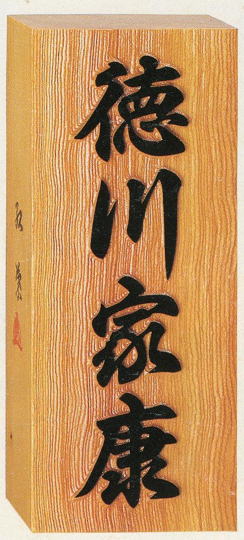 徳川家康